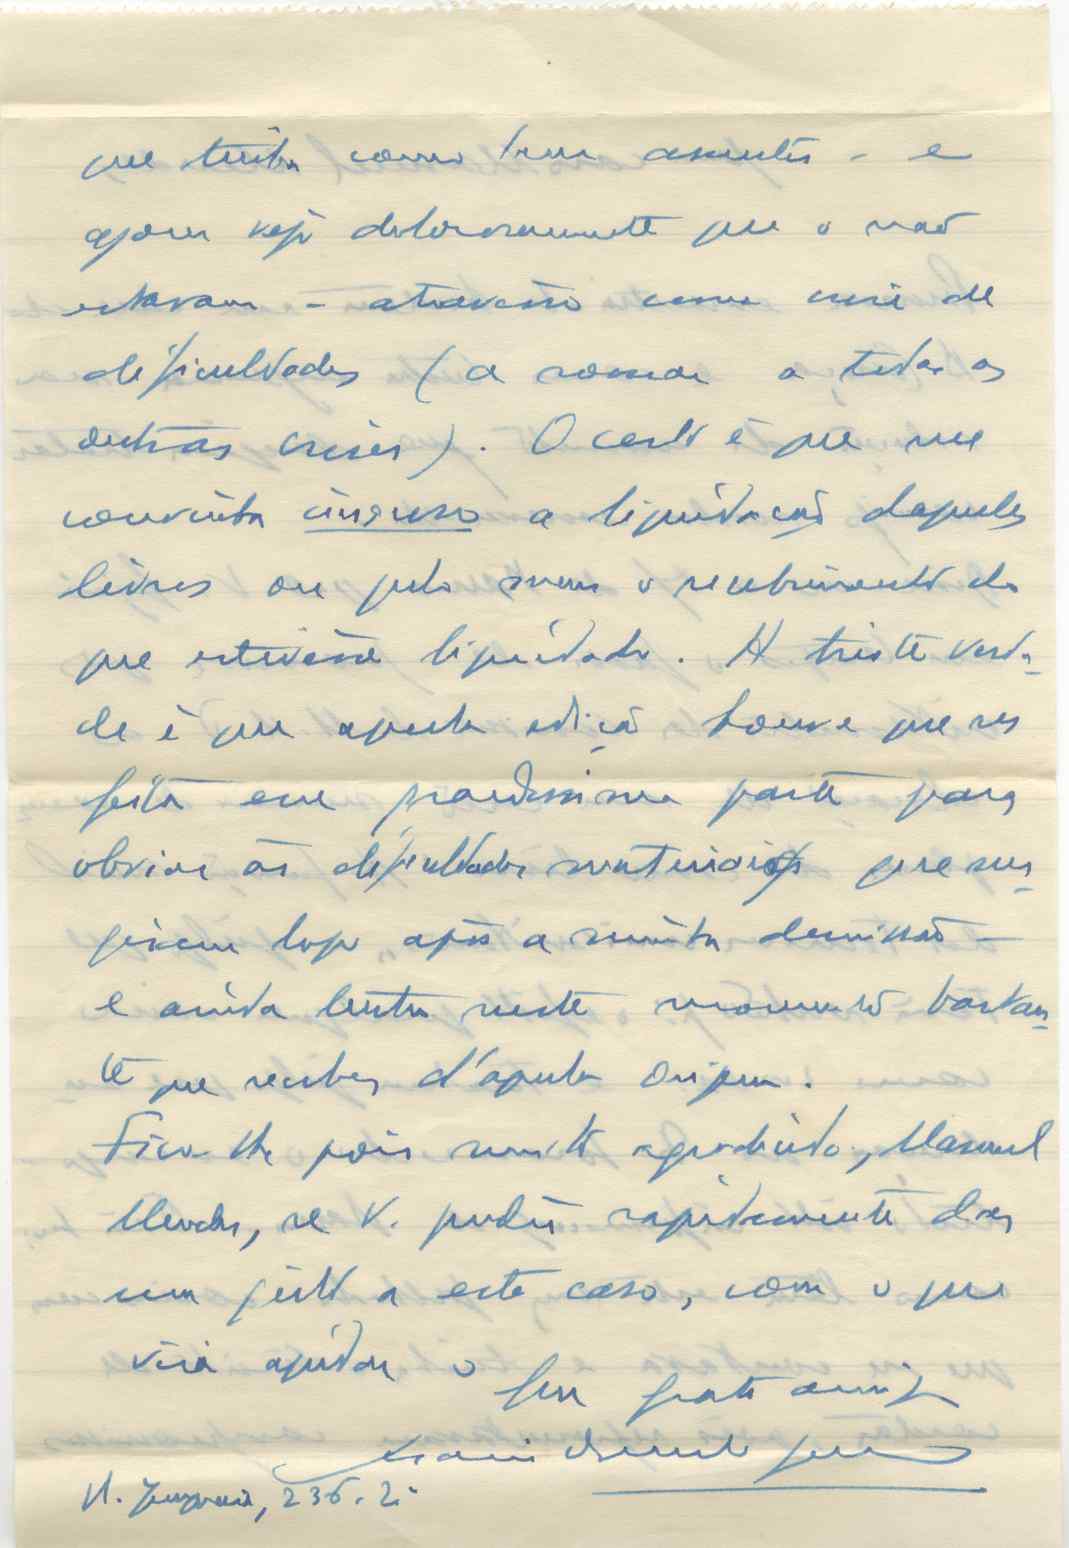 que tinha como bem assentes - e
agora vejo dolorosamente que o não
estavam - atravesso uma crise de
dificuldades (a somar a todas as
outras crises). O certo é que me
convinha imenso a liquidação daqueles
livros ou pelo menos o recebimento do
que estivesse liquidado. A triste verda-
de é que aquela edição houve que ser
feita em grandissima parte para
obviar às dificuldades materiais que sur-
giram logo após a minha demissão -
e ainda tenho neste momento bastan-
te que receber d'aquela origem.
Fico-lhe pois muito agradecido, Manuel
Mendes, se V. puder rapidamente dar
um jeito a este caso, com o que
virá ajudar o
seu grato amigo